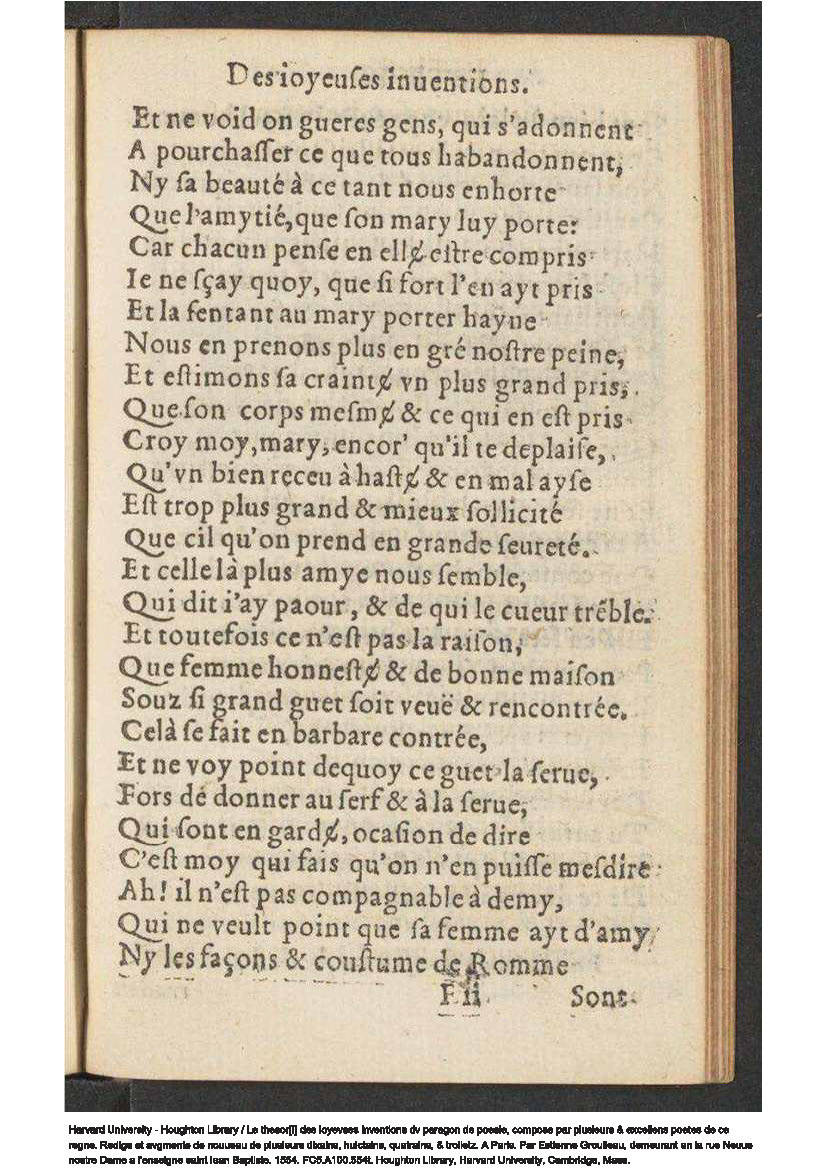 Des ioyeuſes inuentions.
Et ne void on gueres gens, qui s'adonnent
A pourchaſſer ce que tous habandonnent,
Ny ſa beauté à ce tant nous enhorte
Que l'amytié, que ſon mary luy porte:
Car chacun penſe en ellɇ eſtre compris
Ie ne ſçay quoy, que ſi fort l'en ayt pris
Et la ſentant au mary porter hayne
Nous en prenons plus en gré noſtre peine,
Et eſtimons ſa craintɇ vn plus grand pris,
Que ſon corps meſmɇ & ce qui en eſt pris
Croy moy, mary, encor' qu'il te deplaiſe,
Qu'vn bien receu à haſtɇ & en mal ayſe
Eſt trop plus grand & mieux ſollicité
Que cil qu'on prend en grande ſeureté.
Et celle là plus amye nous ſemble,
Qui dit i'ay paour, & de qui le cueur trẽble.
Et toutefois ce n'eſt pas la raiſon,
Que femme honneſtɇ & de bonne maiſon
Souz ſi grand guet ſoit veuë & rencontrée.
Celà ſe fait en barbare contrée,
Et ne voy point dequoy ce guet la ſerue,
Fors dé donner au ſerf & à la ſerue,
Qui ſont en gardɇ, ocaſion de dire
C'eſt moy qui fais qu'on n'en puiſſe meſdire
Ah! il n'eſt pas compagnable à demy,
Qui ne veult point que ſa femme ayt d'amy,
Ny les façons & couſtume de Romme
F ii Sont
Harvard University - Houghton Library / Le thesor[i] des ioyevses inventions dv paragon de poesie, compose par plusieurs & excellens poetes de ce
regne. Redige et avgmente de nouueau de plusieurs dixains, huictains, quatrains, & triolletz. A Paris. Par Estienne Groulleau, demeurant en la rue Neuue
nostre Dame a l'enseigne saint Iean Baptiste. 1554. FC5.A100.554t. Houghton Library, Harvard University, Cambridge, Mass.